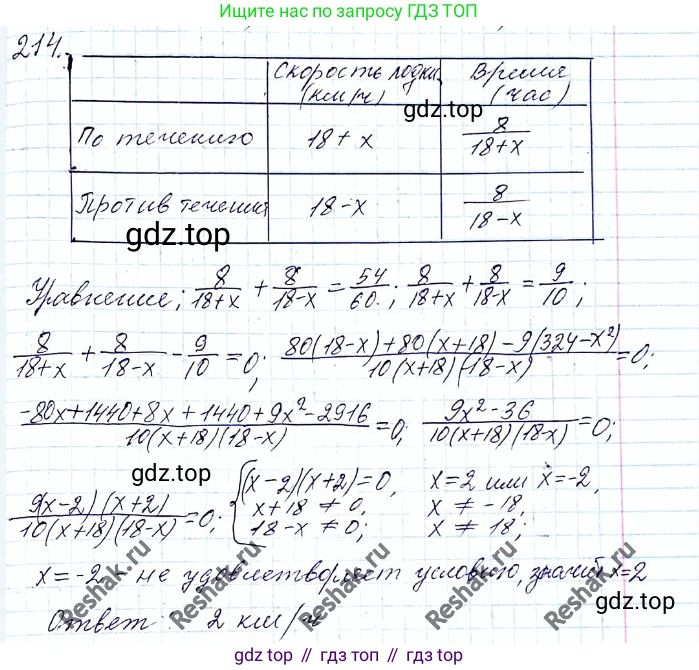 Решачка по запросу ГДЗ ТОП
214.
Скорость лодки (км/ч)
Время (час)
gdz.top
По течению 18+x 8/(18+x)
Против течения 18-x 8/(18-x)
gdz.top
Уравнение; 8/(18+x) + 8/(18-x) = 54/60; 8/(18+x) + 8/(18-x) = 9/10;
8/(18+x) + 8/(18-x) - 9/10 = 0; (80(18-x)+80(x+18)-9(324-x²))/(10(x+18)(18-x)) = 0;
(-80x+1440+8x+1440+9x²-2916)/(10(x+18)(18-x)) = 0; (9x²-36)/(10(x+18)(18-x)) = 0;
gdz.top
9(x-2)(x+2)/(10(x+18)(18-x)) = 0; { (x-2)(x+2)=0, x=2 или x=-2,
x+18 ≠ 0, x ≠ -18,
18-x ≠ 0; x ≠ 18;
x=-2 - не удовлетворяет условию, значит x=2
Reshak.ru Reshak.ru Reshak.ru Reshak.ru
gdz.top
Ответ: 2 км/ч
gdz.top // gdz.top // gdz.top // gdz.top // gdz.top